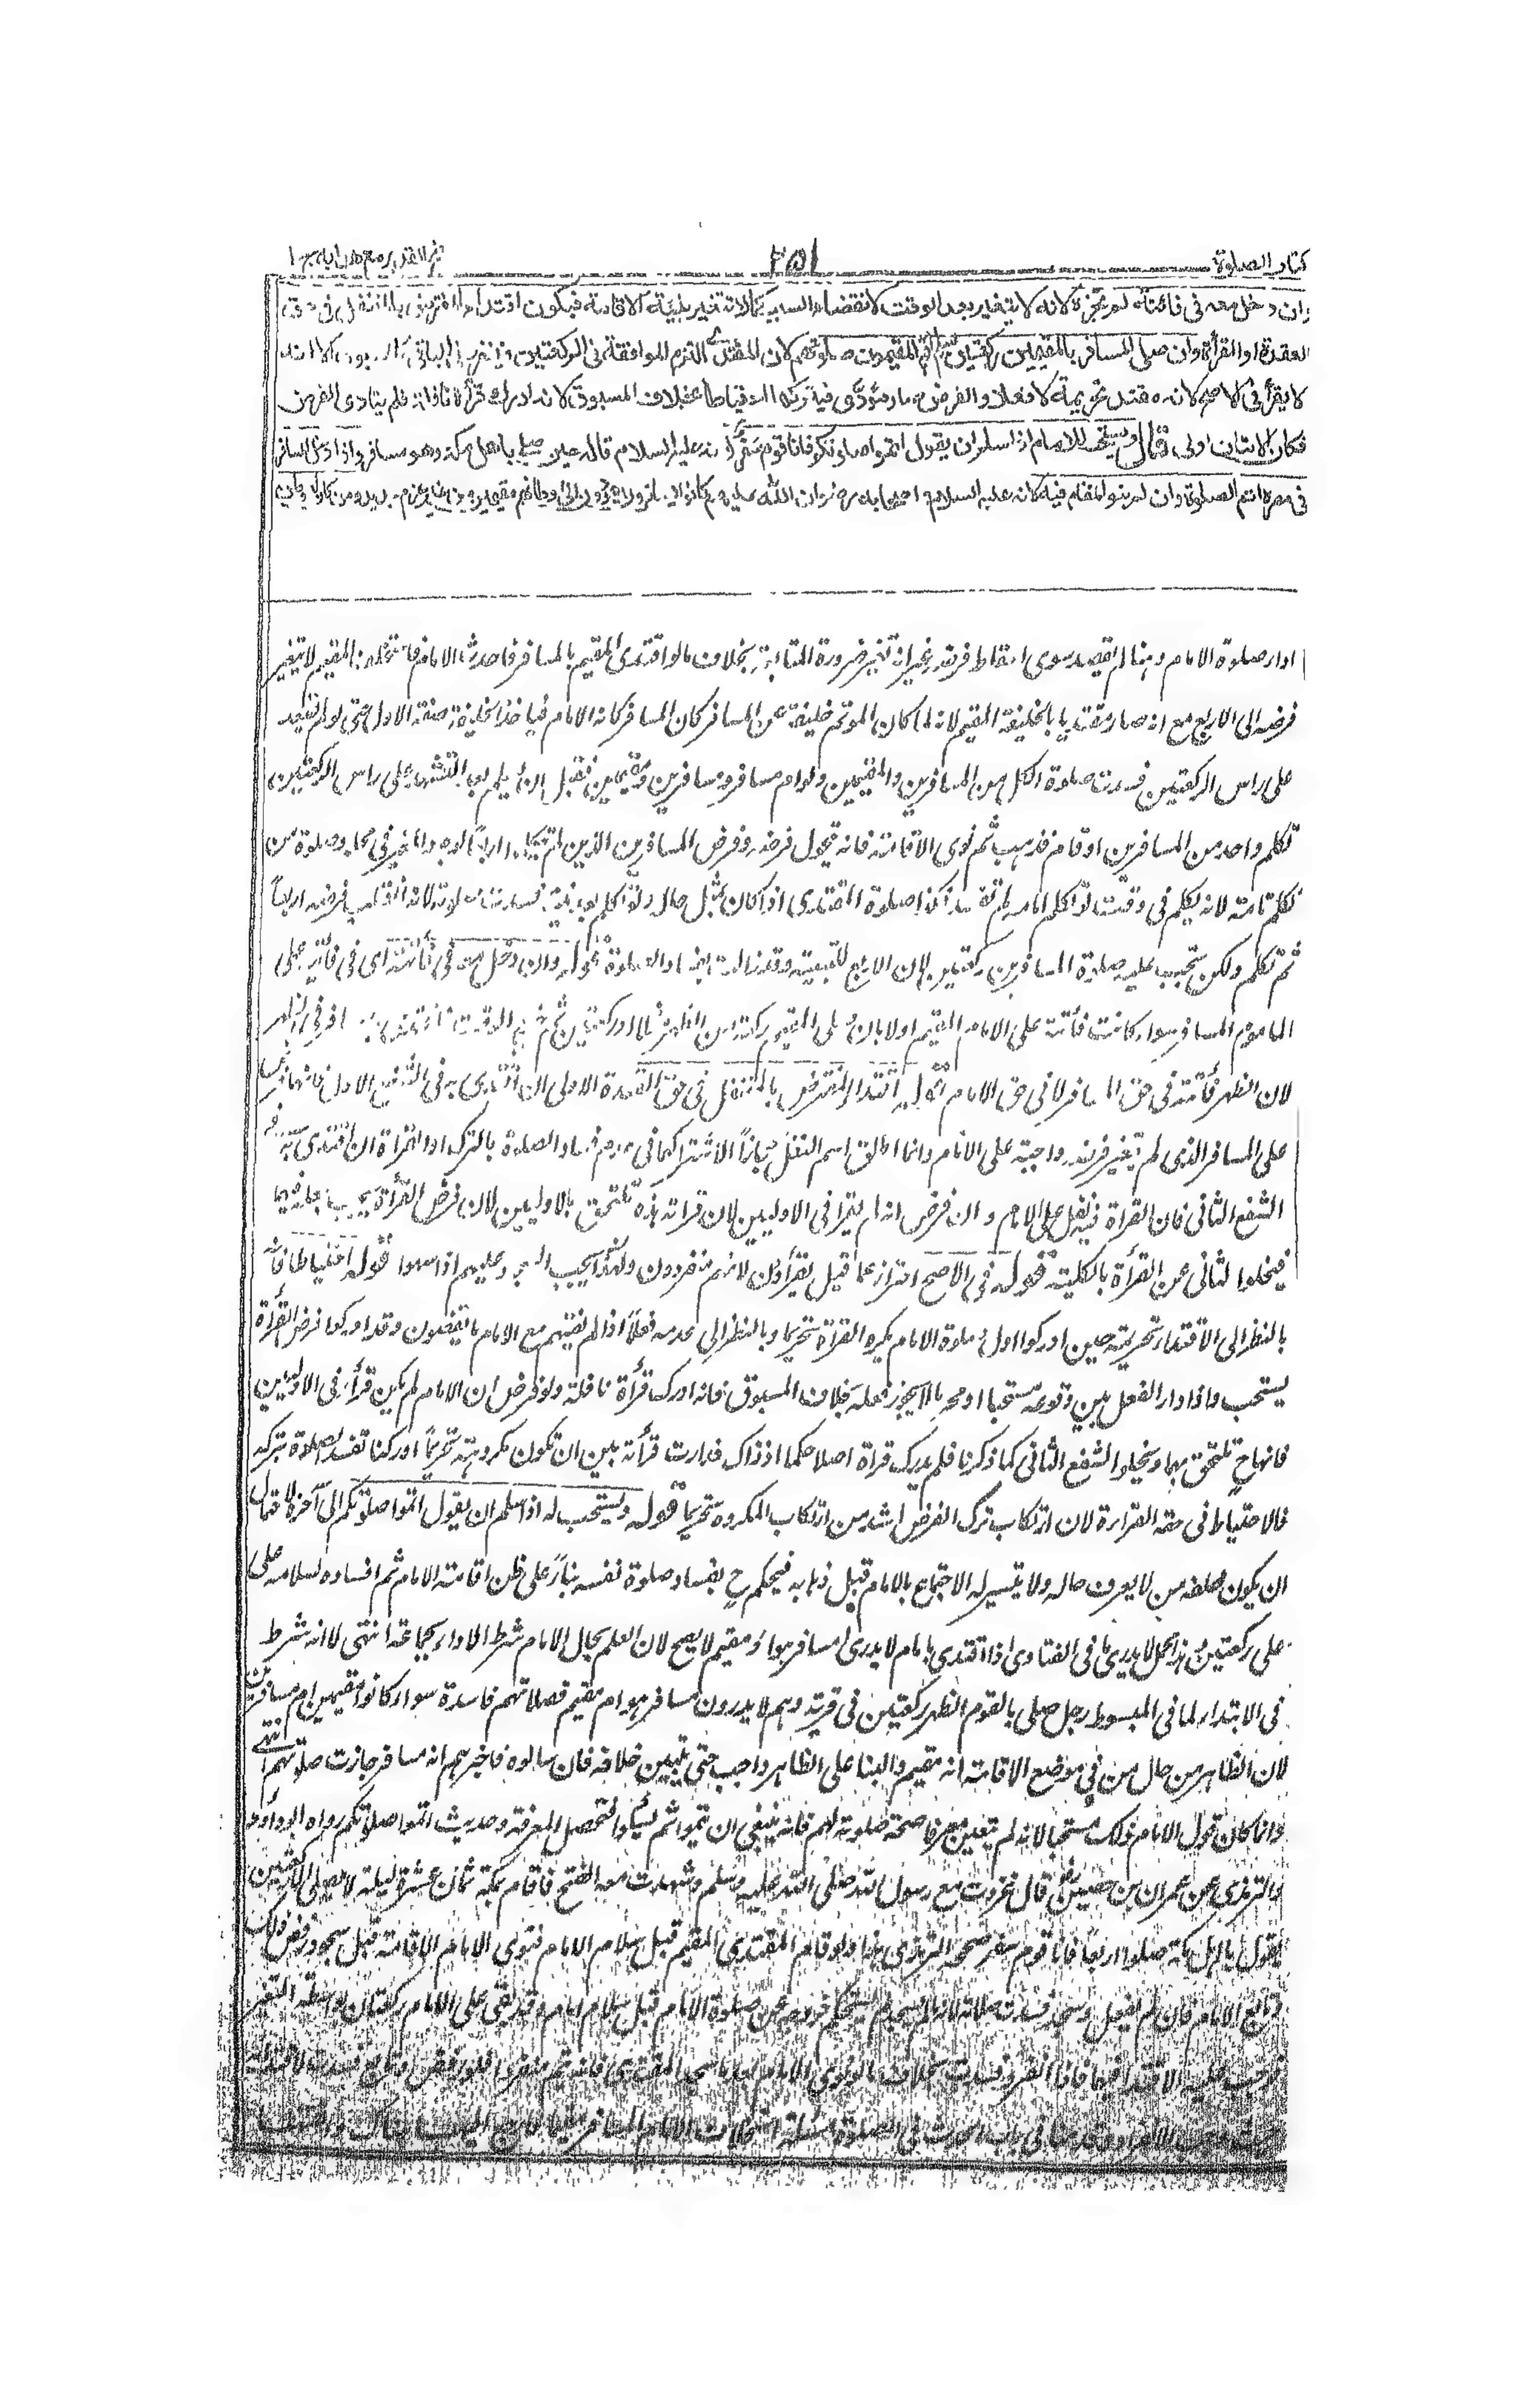 كتاب الصلوة
٢٥١
فتح القدير مع هدايه ج ١
وان دخل معه في فائتة لم تجزه لانه لا يتغير بعد الوقت لانقضاء السبب كما لا تتغير بنية الاقامة فيكون اقتداء المفترض بالمتنفل في حق
القعدة او القرأة وان صلى المسافر بالمقيمين ركعتين سلم واتم المقيمون صلوتهم لان المقتدى التزم الموافقة في الركعتين فينفرد في الباقي كالمسبوق الا انه
لا يقرأ في الاصح لانه مقتد تحريمة لا فعلا والفرض صار مؤدى فيتركها احتياطا بخلاف المسبوق لانه ادرك قرأة نافلة فلم يتادى الفرض
فكان الاتيان اولى قال ويستحب للامام اذا سلم ان يقول اتموا صلوتكم فانا قوم سفر لانه عليه السلام قاله حين صلى باهل مكة وهو مسافر واذا دخل المسافر
في مصره اتم الصلوة وان لم ينو المقام فيه لانه عليه السلام واصحابه رضوان الله عليهم كانوا يسافرون ويعودون الى اوطانهم مقيمين من غير عزم جديد ومن كان له وطن
اداء صلوة الامام وهنا لم يقصد سوى اسقاط فرضه غير انه تغير ضرورة المتابعة بخلاف ما لو اقتدى المقيم بالمسافر فاحدث الامام فاستخلف المقيم لا يتغير
فرضه الى الاربع مع انه صار مقتديا بالخليفة المقيم لانه لما كان المؤتم خليفة عن المسافر كان المسافر كانه الامام فياخذ الخليفة صفة الاول حتى لو لم يقعد
على راس الركعتين فسدت صلوة الكل من المسافرين والمقيمين ولو ام مسافر مسافرين ومقيمين فقبل ان يسلم بعد التشهد على راس الركعتين
تكلم واحد من المسافرين او قام فذهب ثم نوى الاقامة فانه يتحول فرضه وفرض المسافرين الذين لم يتكلموا اربعا لوجود المغير في محله وصلوة من
تكلم تامة لانه تكلم في وقت لو تكلم امامه لم تفسد فكذا صلوة المقتدى اذا كان بمثل حاله ولو تكلم بعد نيته فسدت صلوته لانه انقلب فرضه اربعا
ثم تكلم ولكن يجب عليه صلوة المسافرين ركعتين لان الاربع للتبعية وقد زالت بفساد الصلوة قوله وان دخل معه في فائتة اى في فائتة على
الماموم المسافر سواء كانت فائتة على الامام المقيم اولا بان صلى المقيم ركعة من الظهر مثلا او ركعتين ثم خرج الوقت فاقتدى به او في الظهر
لان الظهر فائتة في حق المسافر لا في حق الامام قوله اقتداء المفترض بالمتنفل في حق القعدة الاولى ان اقتدى به في الشفع الاول
على المسافر الذى لم يتغير فرضه واجبة على الامام وانما اطلق اسم النفل مجازا لاشتراكهما في عدم فساد الصلوة بالترك او القراة ان اقتدى به في
الشفع الثاني فان القراة فيه نفل على الامام وان فرض انه لم يقرا في الاوليين لان قراته هذه تلتحق بالاوليين لان فرض القرأة يجب جعله فيهما
فيخلو الثاني عن القرأة بالكلية قوله في الاصح احتراز عما قيل يقرأون لانهم منفردون ولهذا يجب السجود عليهم اذا سهوا قوله احتياطا فانه
بالنظر الى الاقتداء تحريمة حين ادركوا اول صلوة الامام يكره القراة تحريما وبالنظر الى عدمه فعلا اذا لم يفتهم مع الامام ما يقضون وقد ادركوا فرض القرأة
يستحب واذا دار الفعل بين وقوعه مستحبا او محرما لا يجوز فعله بخلاف المسبوق فانه ادرك قرأة نافلة ولو فرض ان الامام لم يكن قرأ في الاوليين
فانهاح تلتحق بهما ويخلو الشفع الثاني كما ذكرنا فلم يدرك قراة اصلا حكما اذ ذاك فدارت قرأته بين ان تكون مكروهة تحريما او ركنا تفسد الصلوة بتركه
فالاحتياط في حقه القراءة لان ارتكاب ترك الفرض اشد من ارتكاب المكروه تحريما قوله ويستحب له اذا سلم ان يقول اتموا صلوتكم الى آخره لاحتمال
ان يكون خلفه من لا يعرف حاله ولا يتيسر له الاجتماع بالامام قبل ذهابه فيحكم ح بفساد صلوة نفسه بناء على ظن اقامة الامام ثم افساده بسلامه على
على ركعتين وهذا محمل لا يدرى ما في الفتاوى اذا اقتدى بامام لا يدرى امسافر هو او مقيم لا يصح لان العلم بحال الامام شرط الاداء بجماعة انتهى لا انه شرط
في الابتداء لما في المبسوط رجل صلى بالقوم الظهر ركعتين في قرية وهم لا يدرون مسافر هو ام مقيم فصلاتهم فاسدة سواء كانوا مقيمين ام مسافرين
لان الظاهر من حال من في موضع الاقامة انه مقيم والبناء على الظاهر واجب حتى يتبين خلافه فان سالوه فاخبرهم انه مسافر جازت صلوتهم انتهى
وانما كان قول الامام ذلك مستحبا لانه لم يتعين معرفا صحة صلوته لهم فانه ينبغي ان يتموا ثم يسألوا لتحصل المعرفة وحديث اتموا صلوتكم رواه ابو داود
والترمذى عن عمران بن حصين قال غزوت مع رسول الله صلى الله عليه وسلم وشهدت معه الفتح فاقام بمكة ثمان عشرة ليلة لا يصلى الا ركعتين
يقول يا اهل مكة صلوا اربعا فانا قوم سفر صححه الترمذى هذا ولو قام المقتدى المقيم قبل سلام الامام فنوى الامام الاقامة قبل سجوده رفض ذلك
وتابع الامام فان لم يفعل وسجد فسدت صلاته لانه ما لم يسجد لم يستحكم خروجه عن صلوة الامام قبل سلام الامام وقد بقى على الامام ركعتان بواسطة التغير
فوجب عليه الاقتداء فيهما فاذا انفرد فسدت بخلاف ما لو نوى الامام بعد ما سجد المقتدى فانه يتم منفردا فلو رفض وتابع فسدت لاقتدائه